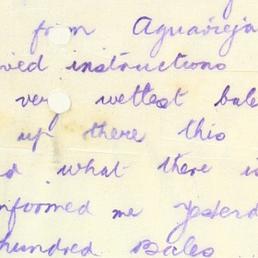 from Aguavieja
ved instructions
very wettest bale
up there this
d what there is
nformed me yesterd
hundred Bales